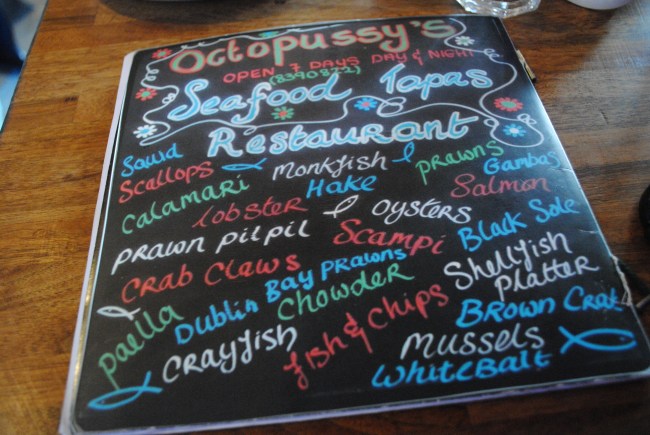 Octopussy's
OPEN 7 DAYS DAY & NIGHT
(8390822)
Seafood Tapas
Restaurant
Squid
Scallops Monkfish Prawns Gambas
Calamari Hake Salmon
lobster oysters Black Sole
Prawn Pil Pil Scampi
Crab Claws Shellfish Platter
Dublin Bay Prawns
Paella Chowder Brown Crab
Crayfish fish & chips Mussels
WhiteBait